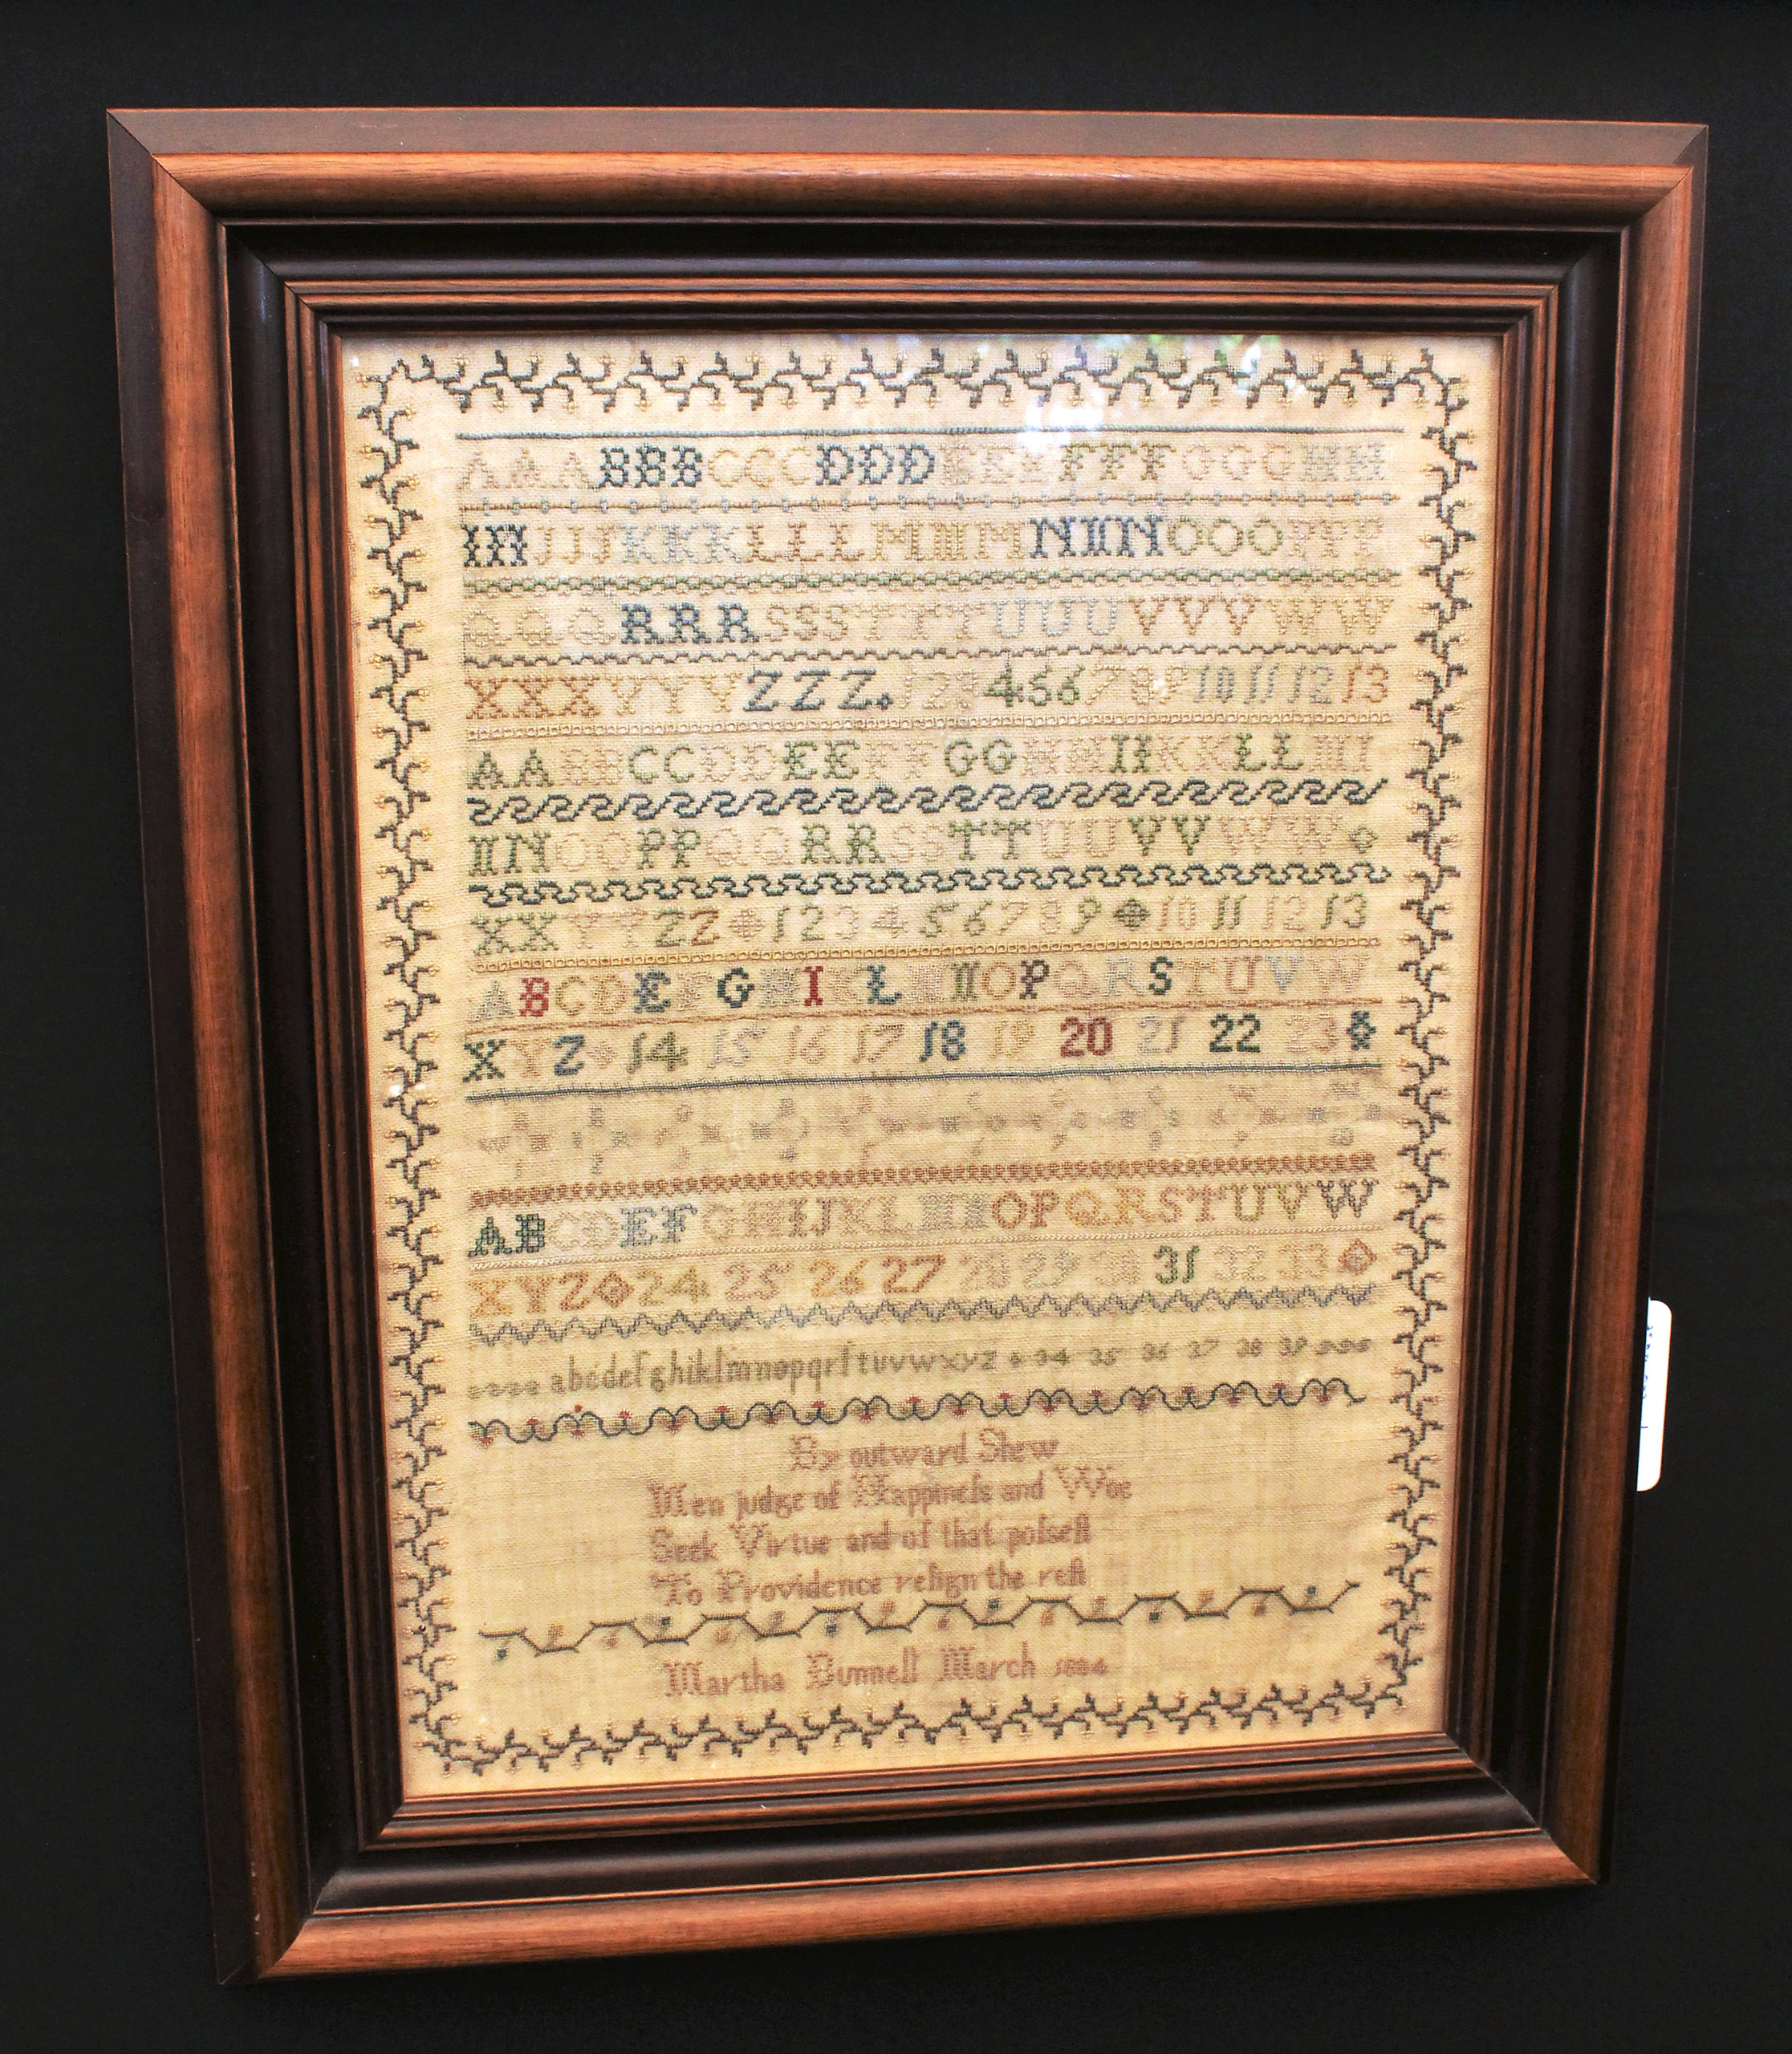 AAABBBCCCDDDEEEFFFGGGHH
HIIIJJJKKKLLLMMMNNNOOOPPP
QQQRRRSSSTTTUUUVVVWW
XXXYYYZZZ 1 2 3 4 5 6 7 8 9 10 11 12 13
AABBCCDDEEFFGGHHIIKKLLM
NNOOPPQQRRSSTTUUVVWW
XXYYZZ 1 2 3 4 5 6 7 8 9 10 11 12 13
ABCDEFGHIKLMNOPQRSTUVW
XYZ 14 15 16 17 18 19 20 21 22 23
ABCDEFGHIJKLMNOPQRSTUVW
XYZ 24 25 26 27 28 29 30 31 32 33
abcdefghiklmnopqrſtuvwxyz 34 35 36 37 38 39
By outward Shew
Men judge of Happineſs and Woe
Seek Virtue and of that poſseſt
To Providence reſign the reſt
Martha Bunnell March